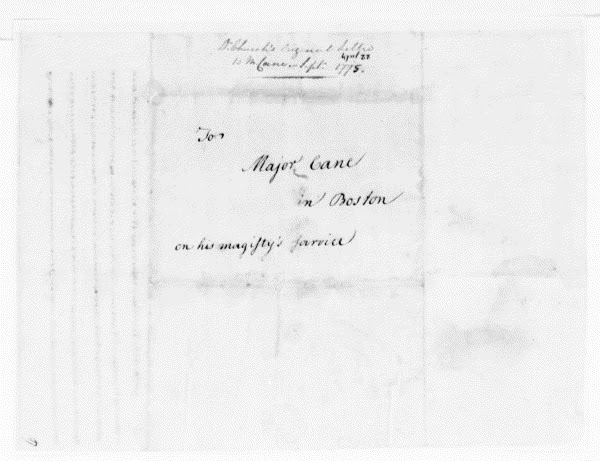 Dr Church's original Letter
to M Cane in Sept. 1775.
To
Major Cane
in Boston
on his magisty's sarvice